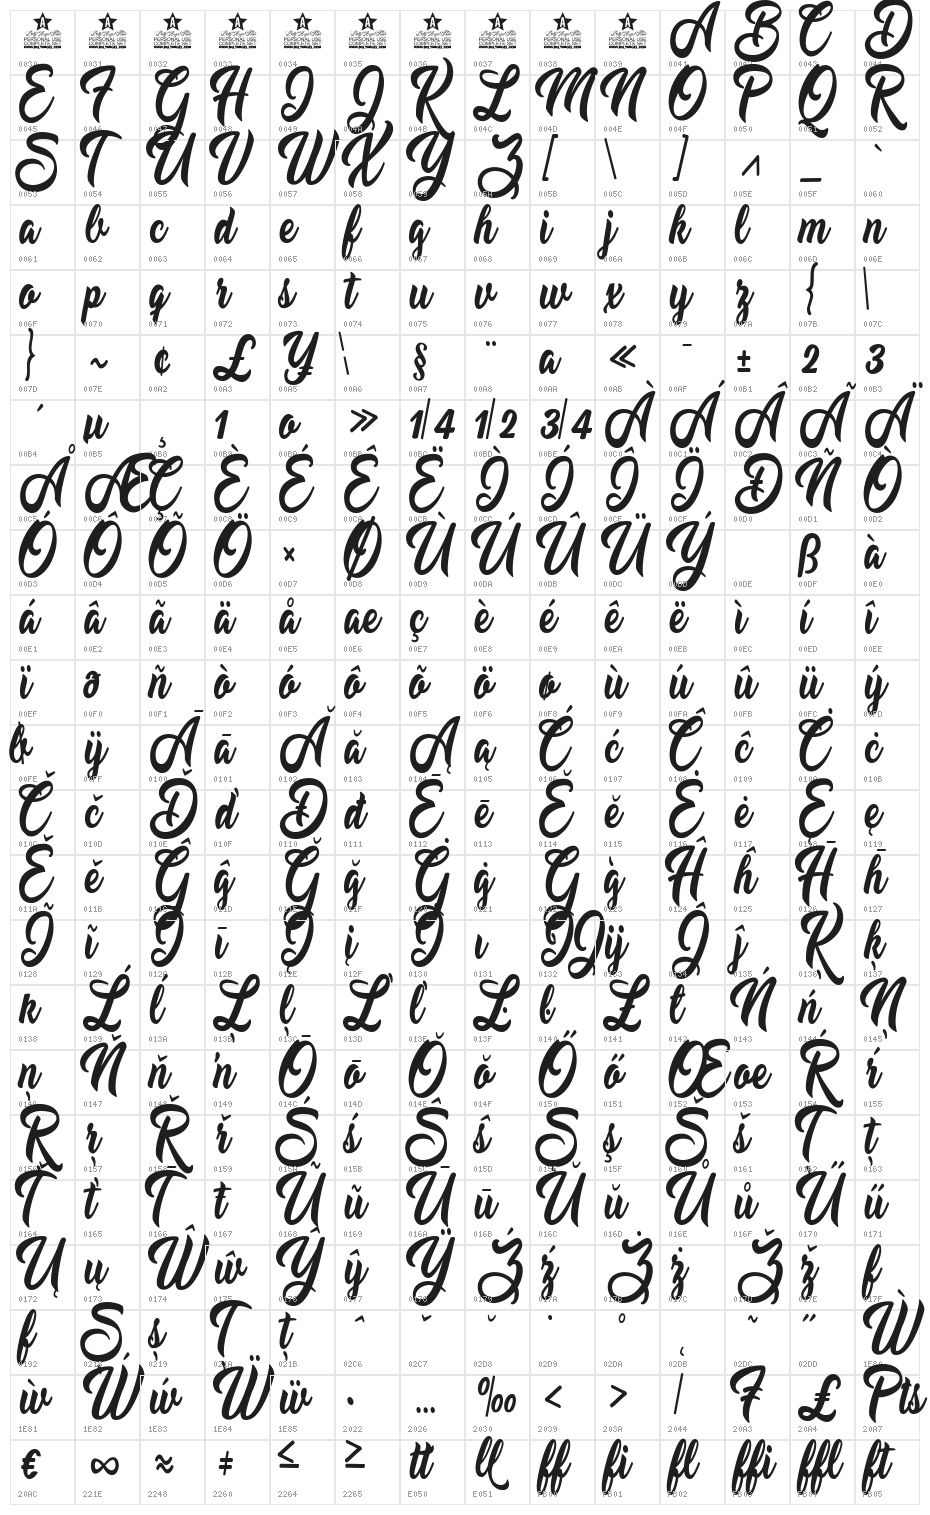 A B C D
0030 0031 0032 0033 0034 0035 0036 0037 0038 0039 0041 0042 0043 0044
E F G H I J K L M N O P Q R
0045 0046 0047 0048 0049 004A 004B 004C 004D 004E 004F 0050 0051 0052
S T U V W X Y Z [ \ ] ^ _ `
0053 0054 0055 0056 0057 0058 0059 005A 005B 005C 005D 005E 005F 0060
a b c d e f g h i j k l m n
0061 0062 0063 0064 0065 0066 0067 0068 0069 006A 006B 006C 006D 006E
o p q r s t u v w x y z { |
006F 0070 0071 0072 0073 0074 0075 0076 0077 0078 0079 007A 007B 007C
} ~ ¢ £ ¥ ¦ § ¨ ª « ¯ ± ² ³
007D 007E 00A2 00A3 00A5 00A6 00A7 00A8 00AA 00AB 00AF 00B1 00B2 00B3
´ µ ¸ ¹ º » ¼ ½ ¾ À Á Â Ã Ä
00B4 00B5 00B8 00B9 00BA 00BB 00BC 00BD 00BE 00C0 00C1 00C2 00C3 00C4
Å Æ Ç È É Ê Ë Ì Í Î Ï Ð Ñ Ò
00C5 00C6 00C7 00C8 00C9 00CA 00CB 00CC 00CD 00CE 00CF 00D0 00D1 00D2
Ó Ô Õ Ö × Ø Ù Ú Û Ü Ý ß à
00D3 00D4 00D5 00D6 00D7 00D8 00D9 00DA 00DB 00DC 00DD 00DE 00DF 00E0
á â ã ä å æ ç è é ê ë ì í î
00E1 00E2 00E3 00E4 00E5 00E6 00E7 00E8 00E9 00EA 00EB 00EC 00ED 00EE
ï ð ñ ò ó ô õ ö ø ù ú û ü ý
00EF 00F0 00F1 00F2 00F3 00F4 00F5 00F6 00F8 00F9 00FA 00FB 00FC 00FD
þ ÿ Ā ā Ă ă Ą ą Ć ć Ĉ ĉ Ċ ċ
00FE 00FF 0100 0101 0102 0103 0104 0105 0106 0107 0108 0109 010A 010B
Č č Ď ď Đ đ Ē ē Ĕ ĕ Ė ė Ę ę
010C 010D 010E 010F 0110 0111 0112 0113 0114 0115 0116 0117 0118 0119
Ě ě Ĝ ĝ Ğ ğ Ġ ġ Ģ ģ Ĥ ĥ Ħ ħ
011A 011B 011C 011D 011E 011F 0120 0121 0122 0123 0124 0125 0126 0127
Ĩ ĩ Ī ī Į į İ ı Ĳ ĳ Ĵ ĵ Ķ ķ
0128 0129 012A 012B 012E 012F 0130 0131 0132 0133 0134 0135 0136 0137
ĸ Ĺ ĺ Ļ ļ Ľ ľ Ŀ ŀ Ł ł Ń ń Ņ
0138 0139 013A 013B 013C 013D 013E 013F 0140 0141 0142 0143 0144 0145
ņ Ň ň ŉ Ō ō Ŏ ŏ Ő ő Œ œ Ŕ ŕ
0146 0147 0148 0149 014C 014D 014E 014F 0150 0151 0152 0153 0154 0155
Ŗ ŗ Ř ř Ś ś Ŝ ŝ Ş ş Š š Ţ ţ
0156 0157 0158 0159 015A 015B 015C 015D 015E 015F 0160 0161 0162 0163
Ť ť Ŧ ŧ Ũ ũ Ū ū Ŭ ŭ Ů ů Ű ű
0164 0165 0166 0167 0168 0169 016A 016B 016C 016D 016E 016F 0170 0171
Ų ų Ŵ ŵ Ŷ ŷ Ÿ Ź ź Ż ż Ž ž ſ
0172 0173 0174 0175 0176 0177 0178 0179 017A 017B 017C 017D 017E 017F
ƒ Ș ș Ț ț ˆ ˇ ˘ ˙ ˚ ˛ ˜ ˝ Ẁ
0192 0218 0219 021A 021B 02C6 02C7 02D8 02D9 02DA 02DB 02DC 02DD 1E80
ẁ Ẃ ẃ Ẅ ẅ • … ‰ ‹ › ⁄ ₣ ₤ ₧
1E81 1E82 1E83 1E84 1E85 2022 2026 2030 2039 203A 2044 20A3 20A4 20A7
€ ∞ ≈ ≠ ≤ ≥ tt ll ff fi fl ffi ffl ft
20AC 221E 2248 2260 2264 2265 E050 E051 FB00 FB01 FB02 FB03 FB04 FB05